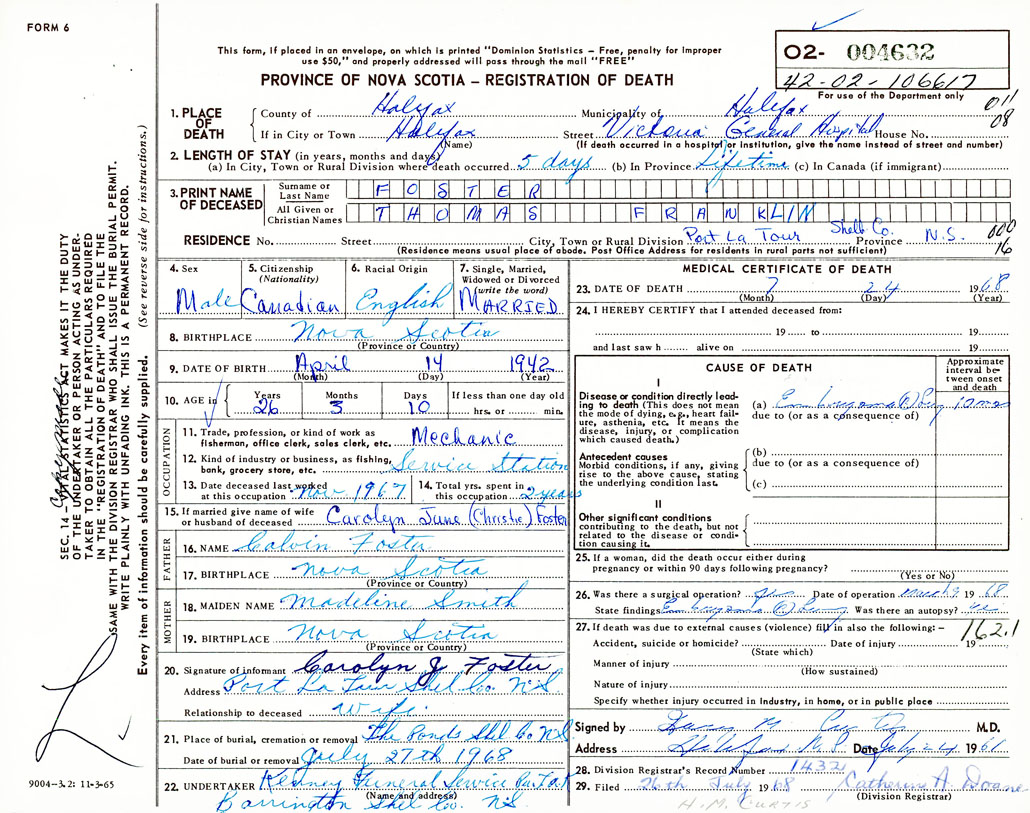 FORM 6
This form, if placed in an envelope, on which is printed "Dominion Statistics – Free, penalty for improper
use $50," and properly addressed will pass through the mail "FREE"
PROVINCE OF NOVA SCOTIA – REGISTRATION OF DEATH
02- 004632
42-02-106617
For use of the Department only
011
08
1. PLACE OF DEATH
County of Halifax Municipality of Halifax
If in City or Town Halifax Street Victoria General Hospital House No.
(Name) (If death occurred in a hospital or institution, give the name instead of street and number)
2. LENGTH OF STAY (in years, months and days)
(a) In City, Town or Rural Division where death occurred 5 days (b) In Province Lifetime (c) In Canada (if immigrant)
3. PRINT NAME OF DECEASED
Surname or Last Name FOSTER
All Given or Christian Names THOMAS FRANKLIN
RESIDENCE No. Street City, Town or Rural Division Port La Tour Shelb Co. Province N.S. 000
16
(Residence means usual place of abode. Post Office Address for residents in rural parts not sufficient)
4. Sex Male
5. Citizenship (Nationality) Canadian
6. Racial Origin English
7. Single, Married, Widowed or Divorced (write the word) MARRIED
8. BIRTHPLACE Nova Scotia
(Province or Country)
9. DATE OF BIRTH April 14 1942
(Month) (Day) (Year)
10. AGE in Years 26 Months 3 Days 10 If less than one day old hrs. or min.
OCCUPATION
11. Trade, profession, or kind of work as fisherman, office clerk, sales clerk, etc. Mechanic
12. Kind of industry or business, as fishing, bank, grocery store, etc. Service Station
13. Date deceased last worked at this occupation Nov 1967
14. Total yrs. spent in this occupation 2 years
15. If married give name of wife or husband of deceased Carolyn June (Christie) Foster
FATHER
16. NAME Calvin Foster
17. BIRTHPLACE Nova Scotia
(Province or Country)
MOTHER
18. MAIDEN NAME Madeline Smith
19. BIRTHPLACE Nova Scotia
(Province or Country)
20. Signature of informant Carolyn J Foster
Address Port La Tour Shel Co. N.S.
Relationship to deceased wife
21. Place of burial, cremation or removal The Ponds Shel Co N.S.
Date of burial or removal July 27th 1968
22. UNDERTAKER Kenney Funeral Service
(Name and address)
Barrington Shel Co. N.S.
MEDICAL CERTIFICATE OF DEATH
23. DATE OF DEATH 7 24 1968
(Month) (Day) (Year)
24. I HEREBY CERTIFY that I attended deceased from:
19 to 19
and last saw h alive on 19
CAUSE OF DEATH
Approximate interval between onset and death
I
Disease or condition directly leading to death (This does not mean the mode of dying, e.g., heart failure, asthenia, etc. It means the disease, injury, or complication which caused death.)
(a)
due to (or as a consequence of)
Antecedent causes
Morbid conditions, if any, giving rise to the above cause, stating the underlying condition last.
(b)
due to (or as a consequence of)
(c)
II
Other significant conditions
contributing to the death, but not related to the disease or condition causing it.
25. If a woman, did the death occur either during
pregnancy or within 90 days following pregnancy?
(Yes or No)
26. Was there a surgical operation? yes Date of operation March 9 1968
State findings Was there an autopsy?
27. If death was due to external causes (violence) fill in also the following:– 162.1
Accident, suicide or homicide? Date of injury 19
(State which)
Manner of injury
(How sustained)
Nature of injury
Specify whether injury occurred in Industry, in home, or in public place
Signed by M.D.
Address Halifax N.S. Date July 24 1961
28. Division Registrar's Record Number 1432
29. Filed 26th July 1968 Catherine A. Doane
(Division Registrar)
H.M. CURTIS
SEC. 14 – VITAL STATISTICS ACT MAKES IT THE DUTY
OF THE UNDERTAKER OR PERSON ACTING AS UNDER-
TAKER TO OBTAIN ALL THE PARTICULARS REQUIRED
IN THE "REGISTRATION OF DEATH" AND TO FILE THE
SAME WITH THE DIVISION REGISTRAR WHO SHALL ISSUE THE BURIAL PERMIT.
WRITE PLAINLY WITH UNFADING INK. THIS IS A PERMANENT RECORD.
Every item of information should be carefully supplied. (See reverse side for instructions.)
9004–3.2: 11-3-65